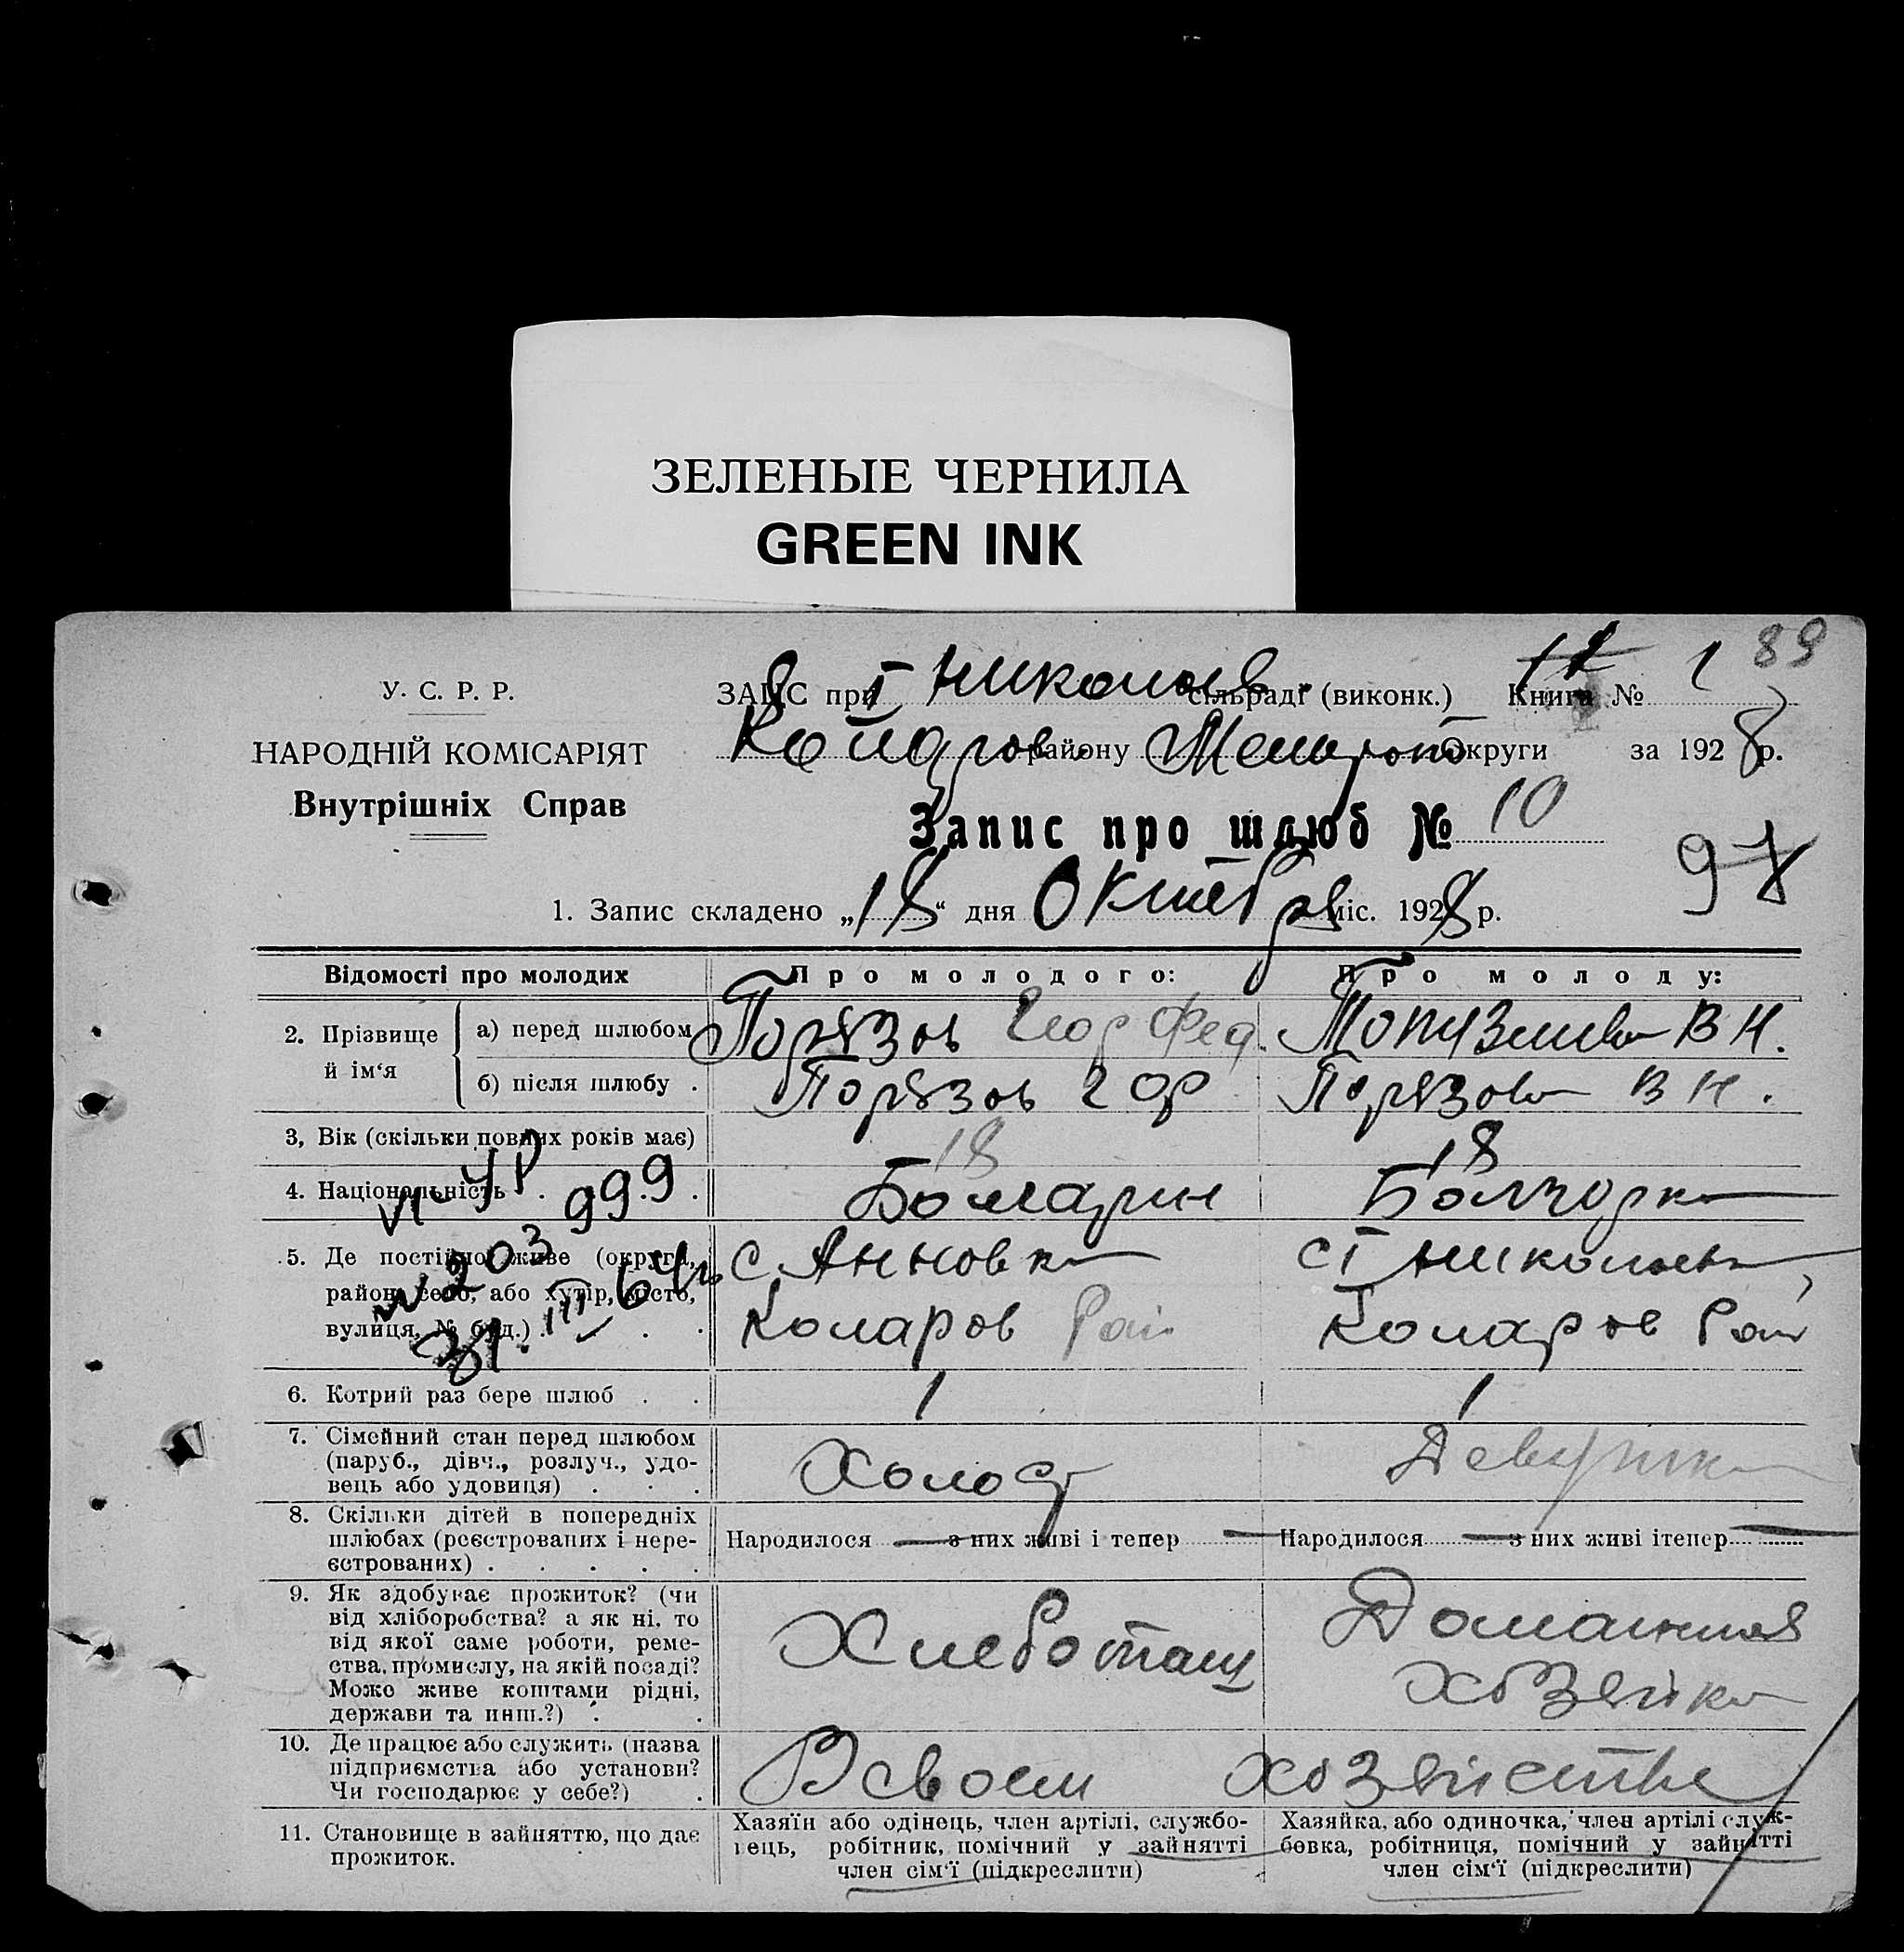 ЗЕЛЕНЫЕ ЧЕРНИЛА
GREEN INK
89
У. С. Р. Р.
НАРОДНІЙ КОМІСАРІЯТ
Внутрішніх Справ
ЗАЦС при Николаев сільраді (виконк.) Книга № 1
Коларов району округи за 1928 р.
Запис про шлюб № 10
97
1. Запис складено „18“ дня Октября міс. 1928 р.
Відомості про молодих Про молодого: Про молоду:
2. Прізвище й ім‘я
а) перед шлюбом Порязов Геор Фед. Топузлиева В Н.
б) після шлюбу . Порязов Г Ф Порязова В Н.
3, Вік (скільки повних років має) 18 18
4. Національність . . . . Болгарин Болгорка
5. Де постійно живе (округа, район, село, або хутір, місто, вулиця, № буд.) . . . .
с Анновка
Коларов Рай
Коларов Рай
999
№ 203
31.III 64
6. Котрий раз бере шлюб . . 1 1
7. Сімейний стан перед шлюбом (паруб., дівч., розлуч., удовець або удовиця) . . . Холост Девушка
8. Скільки дітей в попередніх шлюбах (реєстрованих і нереєстрованих) . . . . .
Народилося — з них живі і тепер — Народилося — з них живі ітепер —
9. Як здобуває прожиток? (чи від хліборобства? а як ні, то від якої саме роботи, ремества, промислу, на якій посаді? Може живе коштами рідні, держави та инш.?) . .
Хлебопащ
Домашняя
Хозяйка
10. Де працює або служить (назва підприємства або установи? Чи господарює у себе?) .
В своем хозяйстве
11. Становище в зайняттю, що дає прожиток.
Хазяїн або одінець, член артілі, службовець, робітник, помічний у зайнятті член сім‘ї (підкреслити)
Хазяйка, або одиночка, член артілі службовка, робітниця, помічний у зайнятті член сім‘ї (підкреслити)